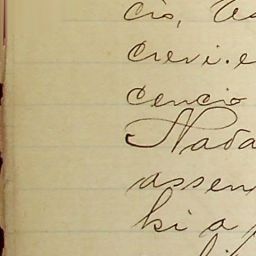 cio,
crevi. e
cencio
Nada
assen
ki a